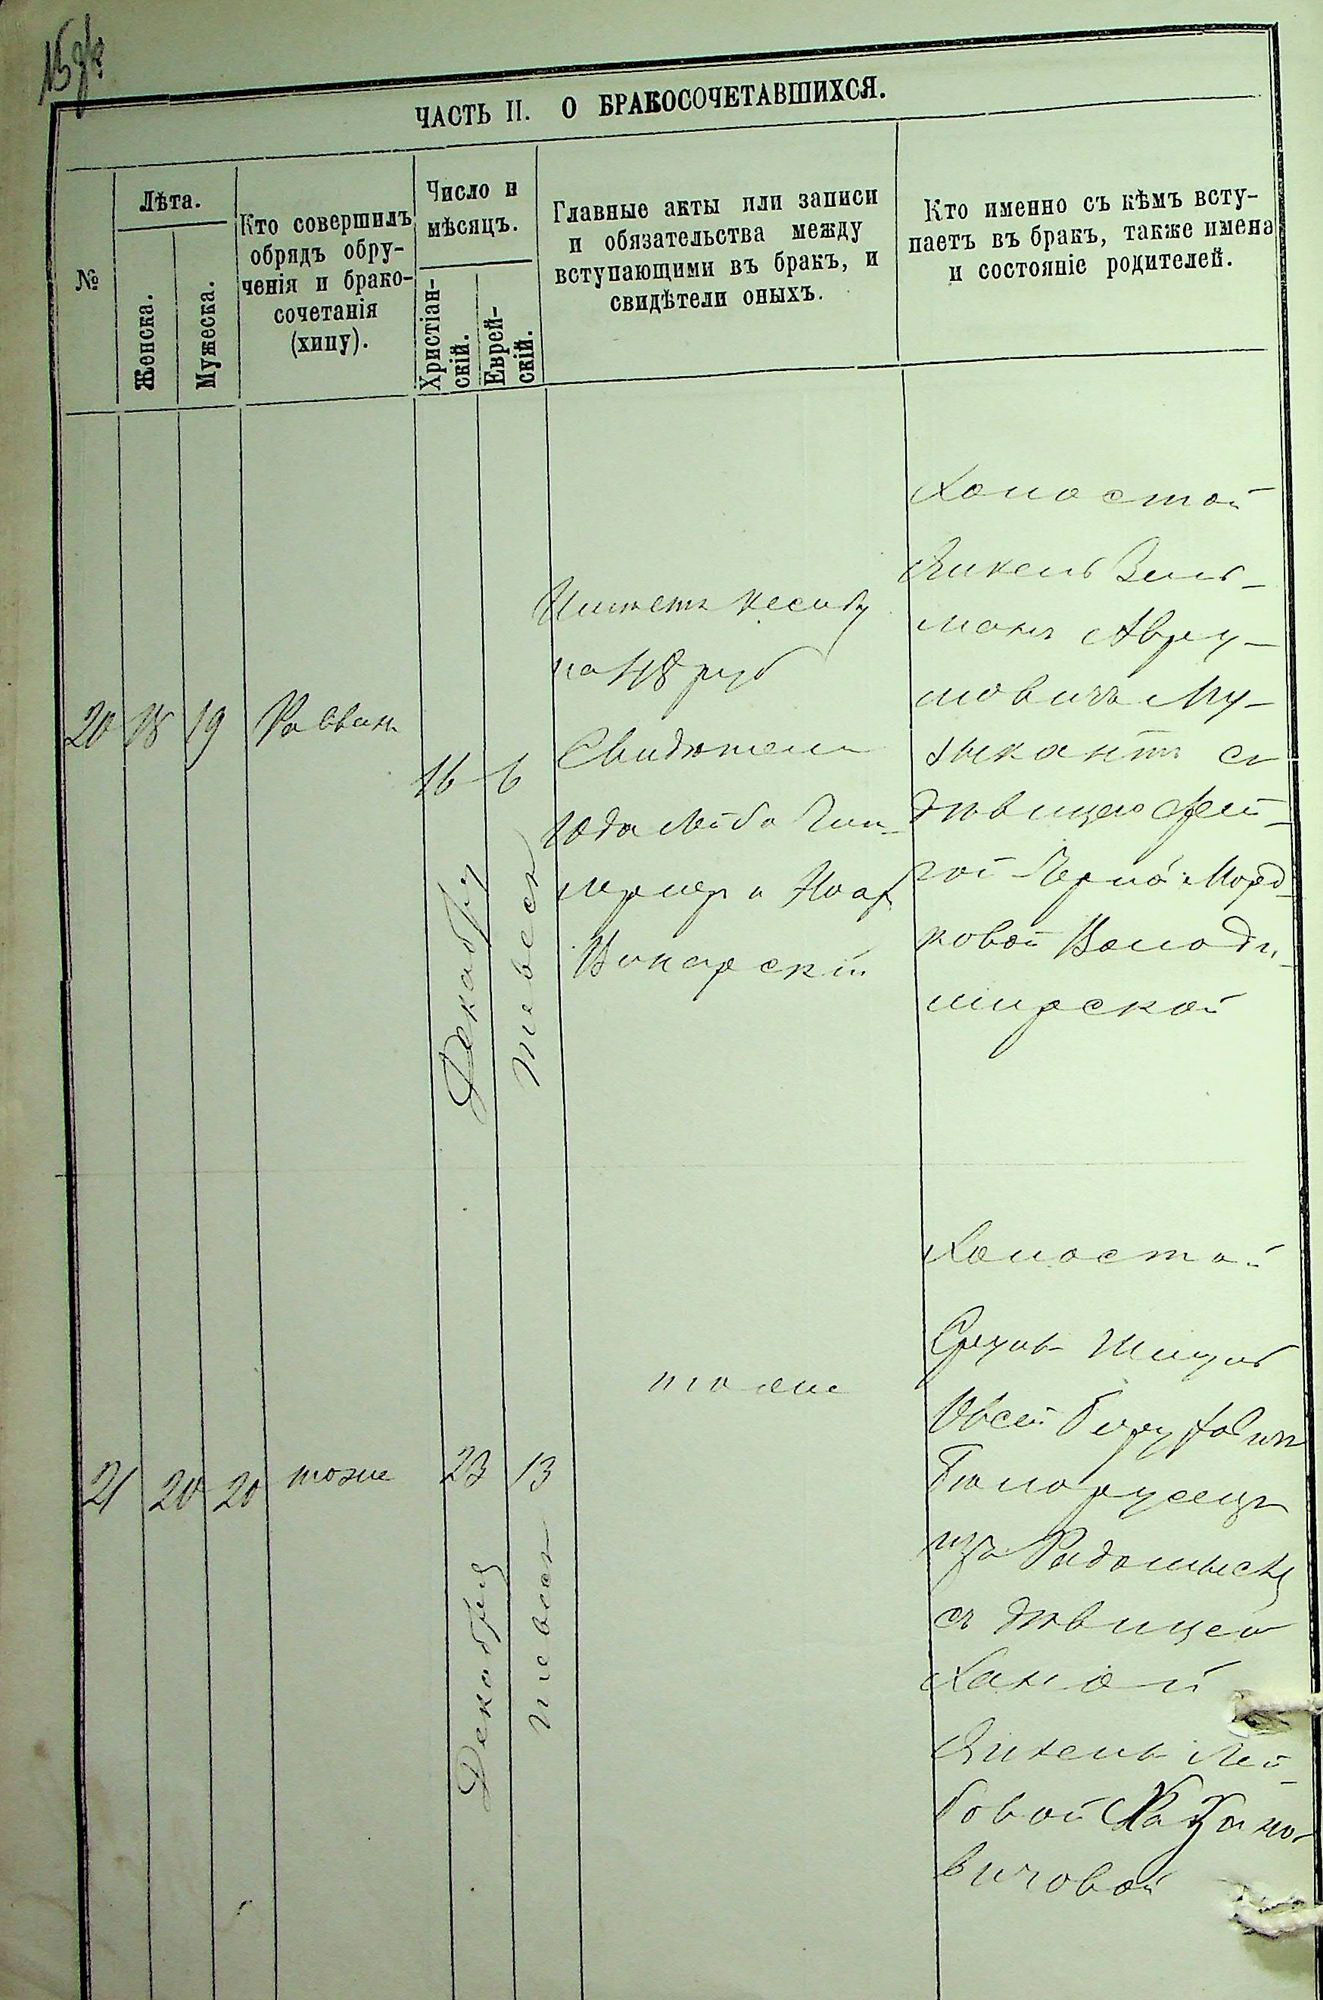 ЧАСТЬ II. О БРАКОСОЧЕТАВШИХСЯ.
№
Лѣта.
Женска.
Мужеска.
Кто совершилъ
обрядъ обру-
ченія и брако-
сочетанія
(хипу).
Число и
мѣсяцъ.
Христіан-
скій.
Еврей-
скій.
Главные акты или записи
и обязательства между
вступающими въ бракъ, и
свидѣтели оныхъ.
Кто именно съ кѣмъ всту-
паетъ въ бракъ, также имена
и состояніе родителей.
20
18
19
Раввинъ
16
6
Декабря
Тевеса
на 48 руб
Свидѣтели
Юда Лейба
Винарскій
Холостой
Янкель Зель-
манъ Авру-
мовичъ Му-
зыкантъ съ
дѣвицею Фей-
гой Перлой Морд-
ковой Володи-
мирской
21
20
20
тоже
23
13
Декабря
Тевеса
тоже
Холостой
Сруль
Овсей
Бѣлорусецъ
изъ Радомысля
съ дѣвицею
Ханой
Янкель Лей-
бовой
вичовой